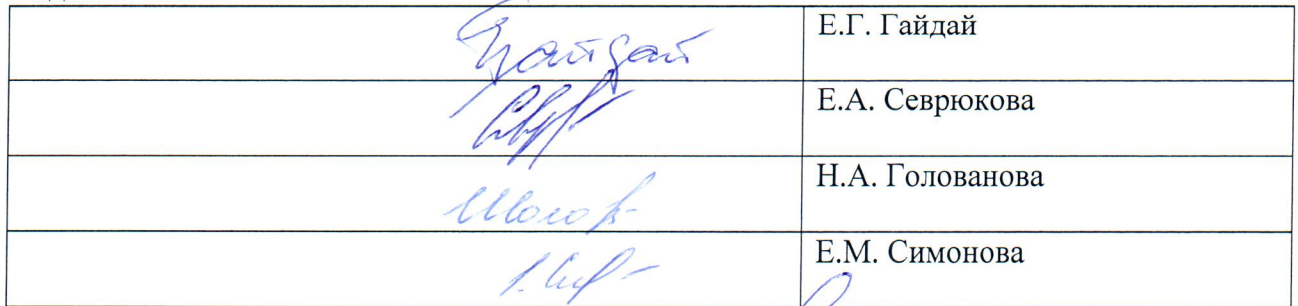 Гайдай Е.Г. Гайдай
Е.А. Севрюкова
Н.А. Голованова
Е.М. Симонова